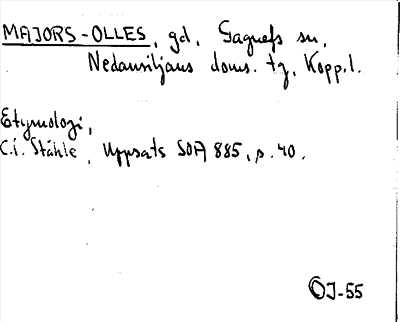 MAJORS-OLLES, gd, Gagnefs sn,
Nedansiljans doms. tg, Kopp.l.
Etymologi,
C.I. Ståhle, Uppsats SOA 885, s. 40.
OJ-55